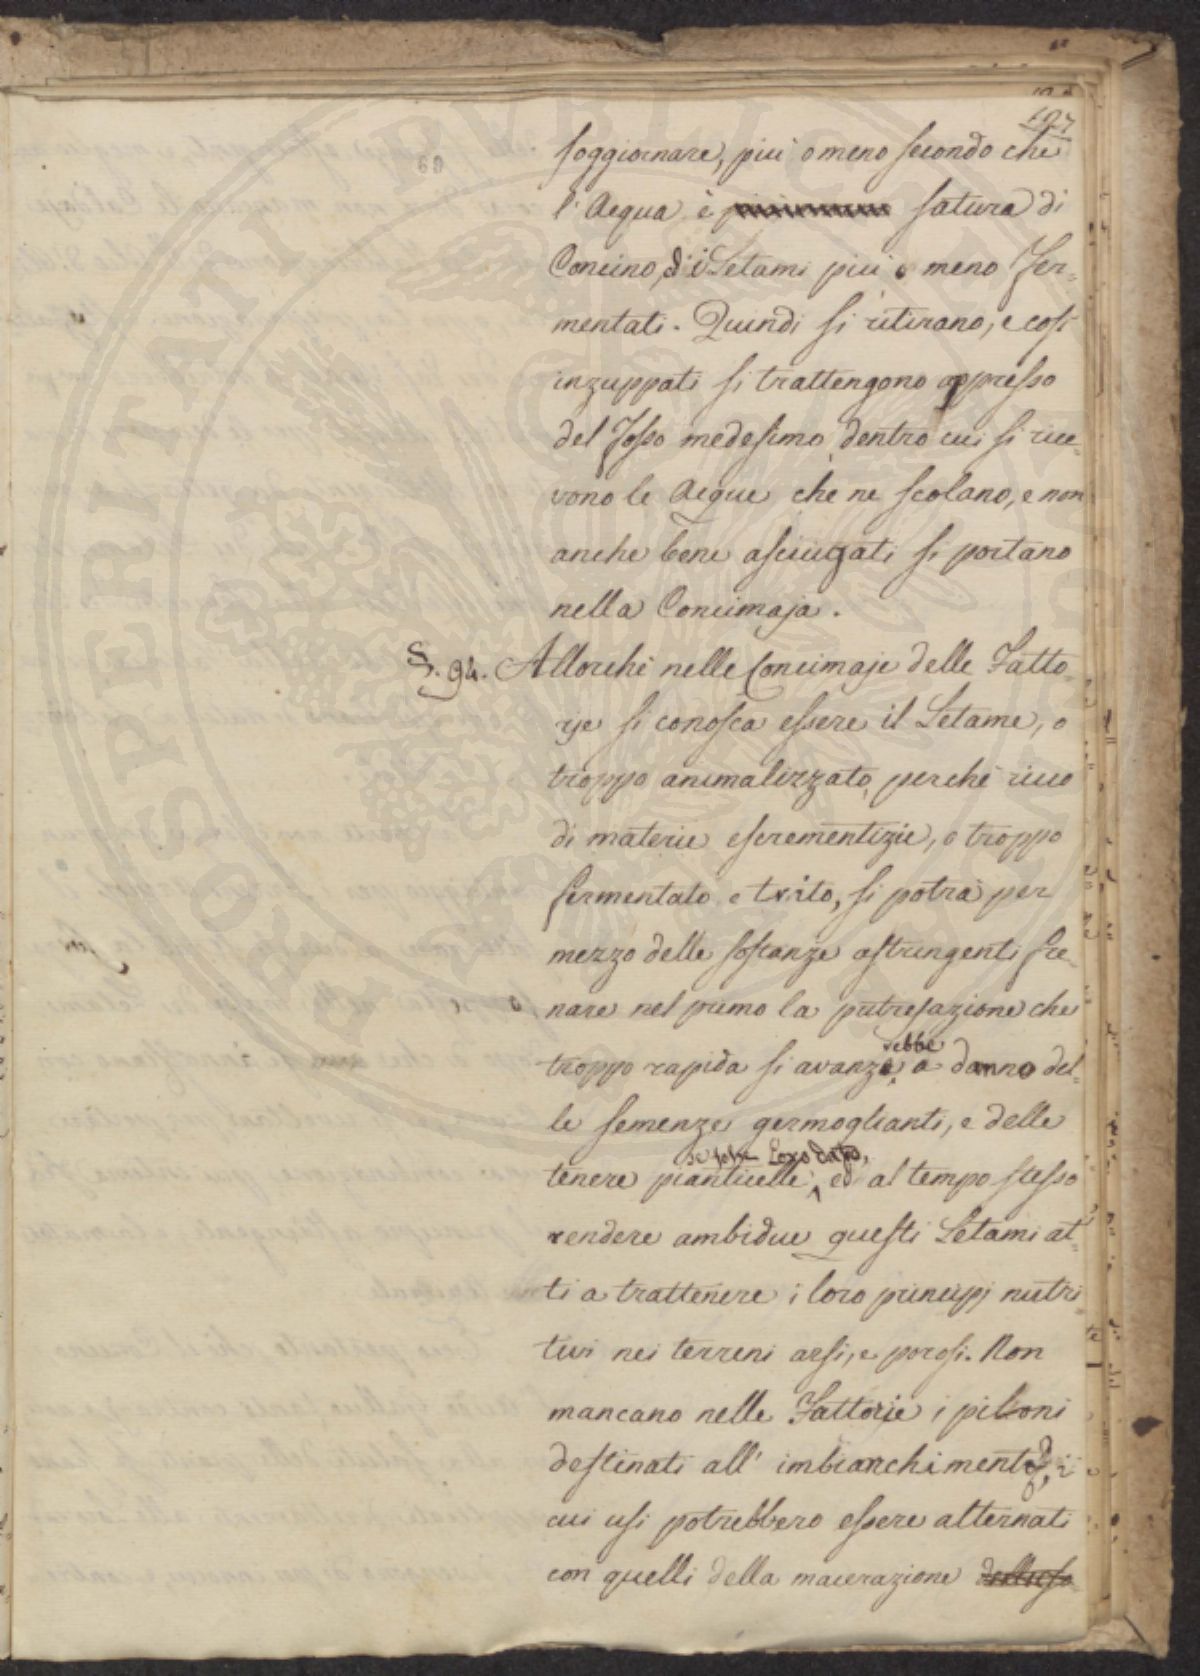 107
soggiornare, più o meno secondo che
l'Acqua è satura di
Concino, o i Letami più o meno Fer-
mentati. Quindi si ritirano, e così
inzuppati si trattengono appresso
del Fosso medesimo dentro cui si rice-
vono le Acque che ne scolano, e non
anche bene asciugati si portano
nella Concimaja.
§. 94. Allorchè nelle Concimaje delle Fatto-
rje si conosca essere il Letame, o
troppo animalizzato, perchè ricco
di materie escrementizie, o troppo
fermentato e trito, si potrà per
mezzo delle sostanze astringenti fre-
nare nel primo la putrefazione che
troppo rapida si avanzerebbe a danno del-
le semenze germoglianti, e delle
tenere pianticelle, ed al tempo stesso
rendere ambidue questi Letami at-
ti a trattenere i loro principj nutri-
tivi nei terreni arsi, e porosi. Non
mancano nelle Fattorie i piloni
destinati all' imbianchimento, i
cui usi potrebbero essere alternati
con quelli della macerazione
PROSPERITATI PUBLICAE